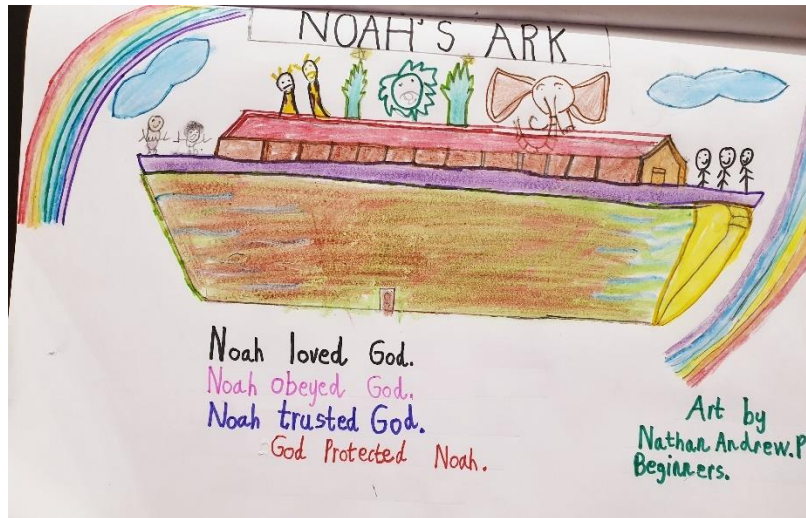 NOAH'S ARK
Noah loved God.
Noah obeyed God.
Noah trusted God.
God Protected Noah.
Art by
Nathan Andrew.P
Beginners.